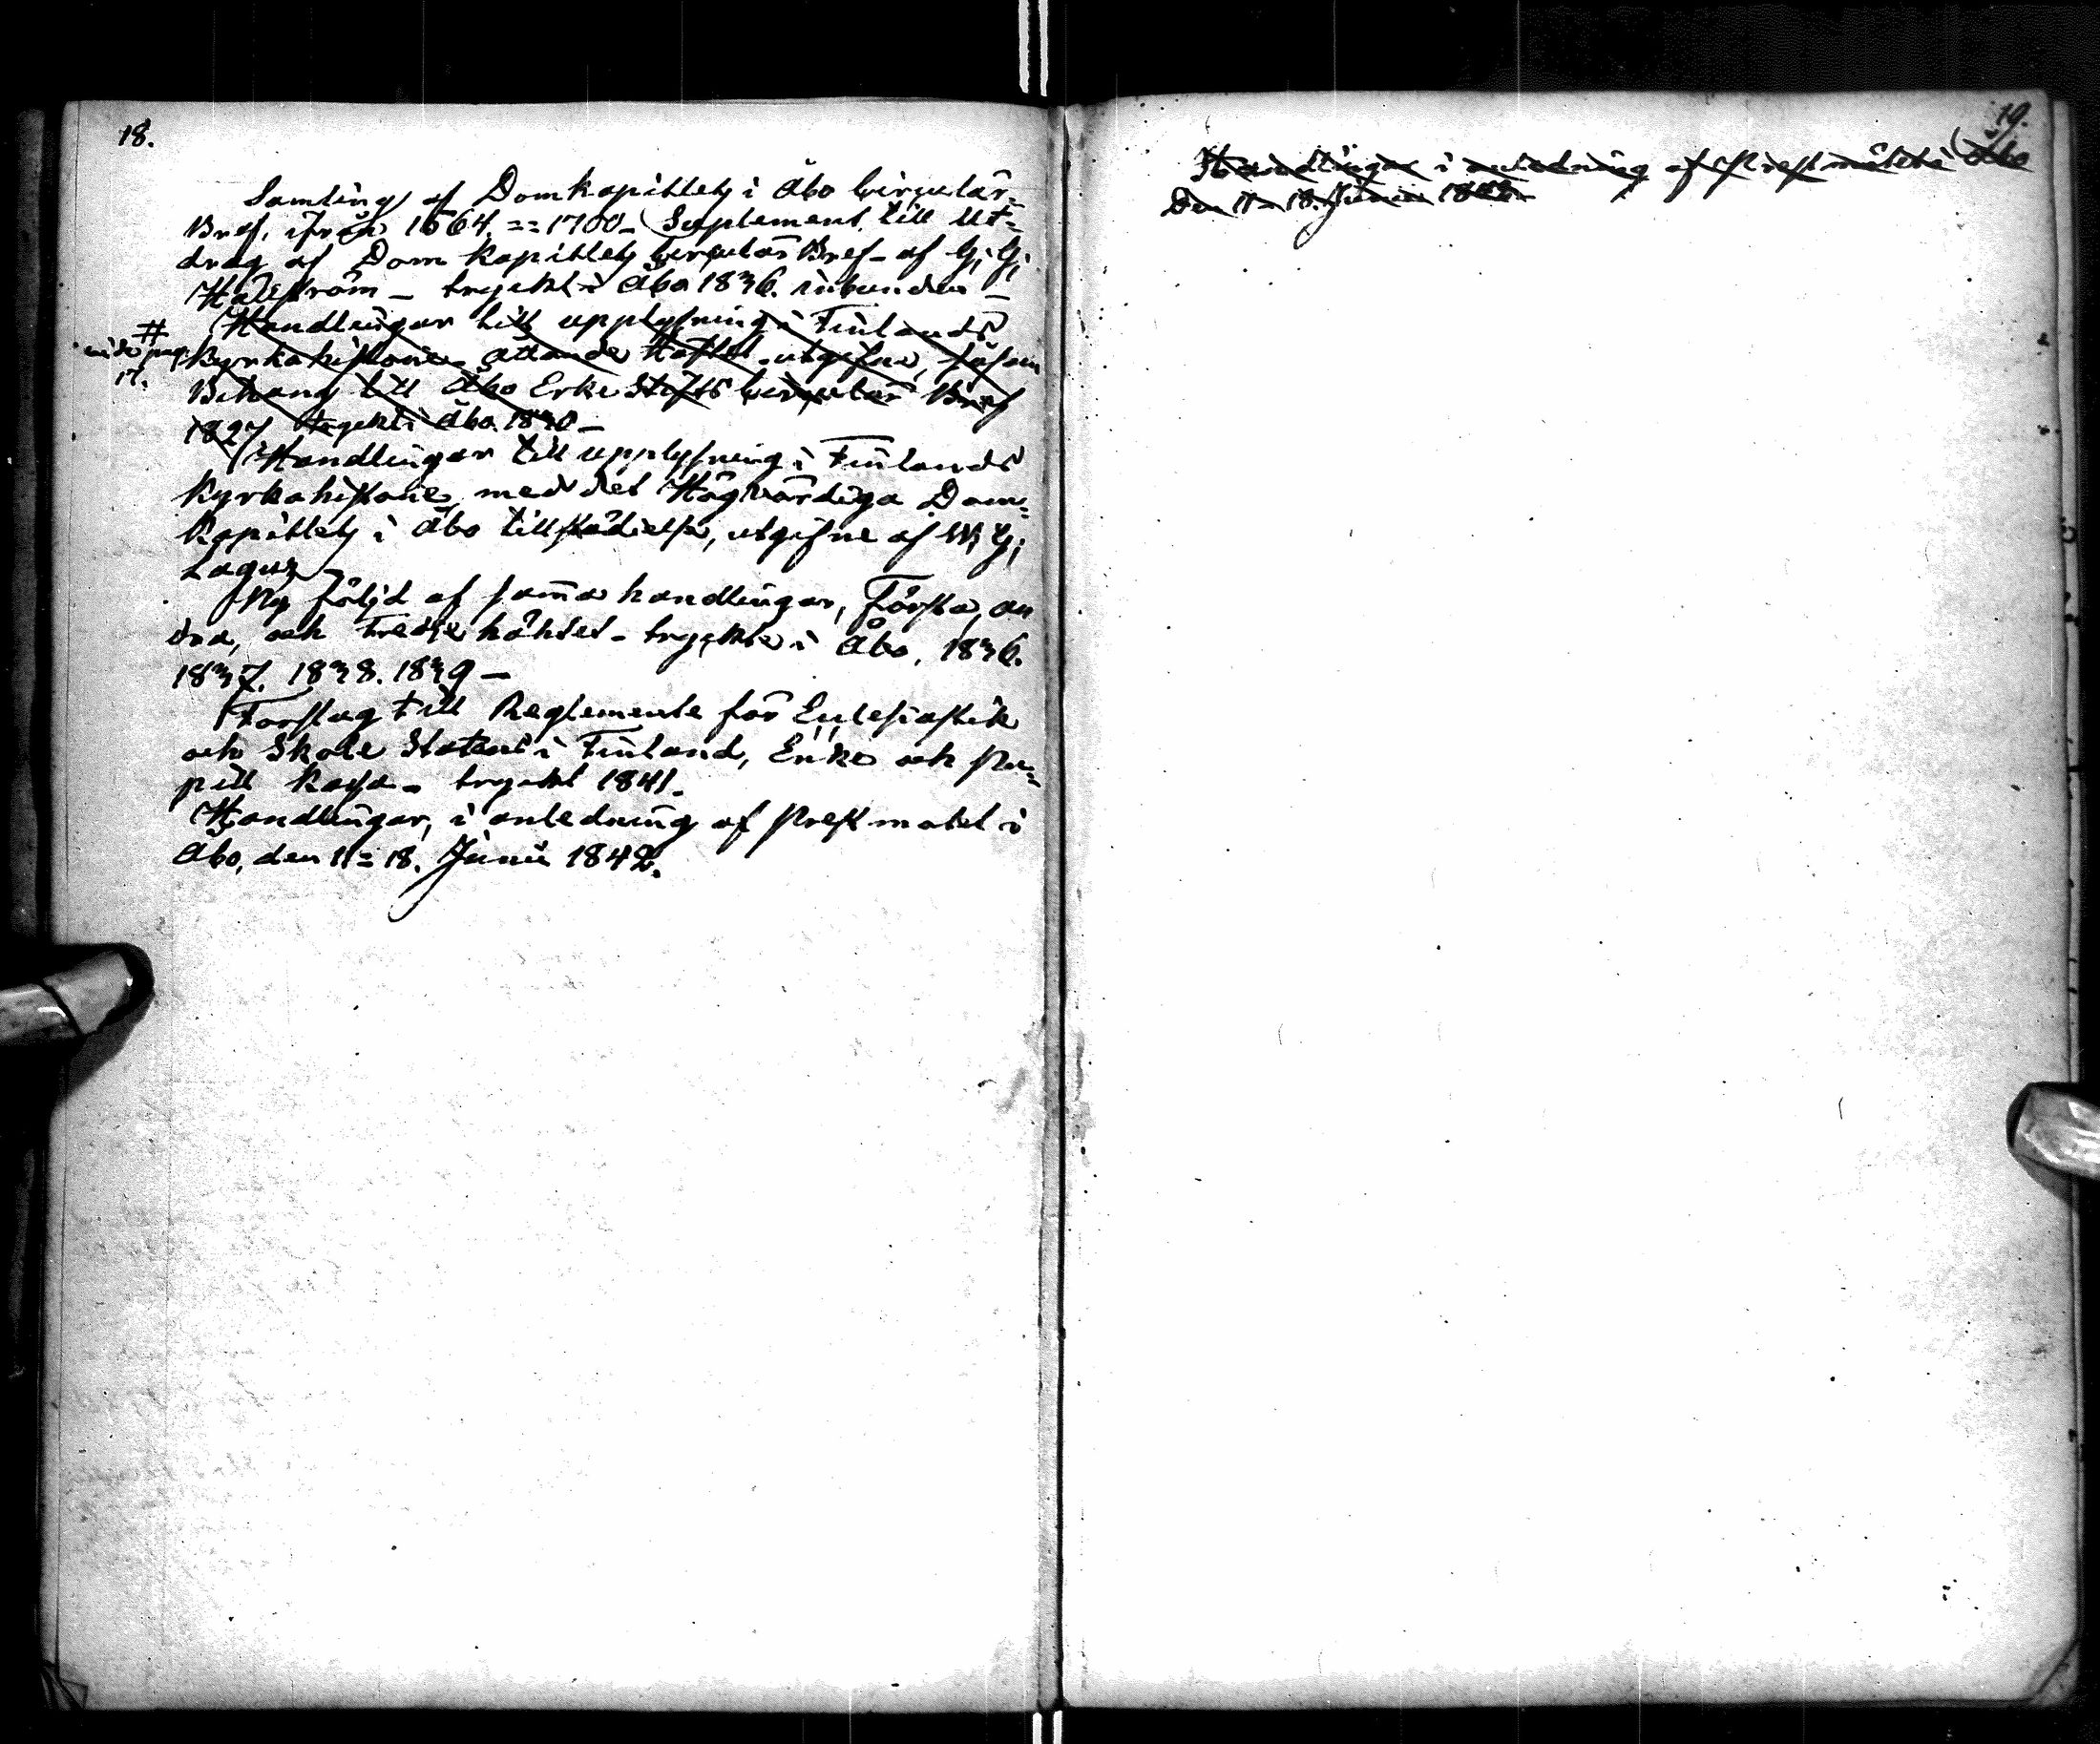 18.
Samling af Domkapitlets i Åbo Circulär-
Bref, ifrån 1564. == 1700 - (Suplement till Ut-
drag af Domkapitlets Circulär Bref - af G: G:
Hallström - tryckt i Åbo 1836. inbunden -
Handlingar till upplysning i Finlands
#
vide pag.
17.
Kyrkohistorie Attande Häftet. utgifne, såsom
Bihang till Åbo Erke Stifts Circulär Bref
1827 tryckt i Åbo. 1830 -
Handlingar till upplysning i Finlands
Kyrkohistorie, med det Högvördiga Dom=
Kapitlets i Åbo tillstädielse, utgifne af W: G:
Lagus -
Ny följd af samma handlingar, Första, an
dra, och Tredje häftet - tryckte i Åbo, 1836.
1837. 1838. 1839 -
Forslag till Reglemente för Ecclesiastik
och Skole Staten i Finland, Enke och Pu=
pill Kassa - tryckt 1841.
Handlingar, i anledning af Prestmötet i
Åbo, den 11 = 18. Junii 1842.
19.
Handlingar i anledning af Prestmötet i Åbo
Den 11 = 18. Junii 1842 -